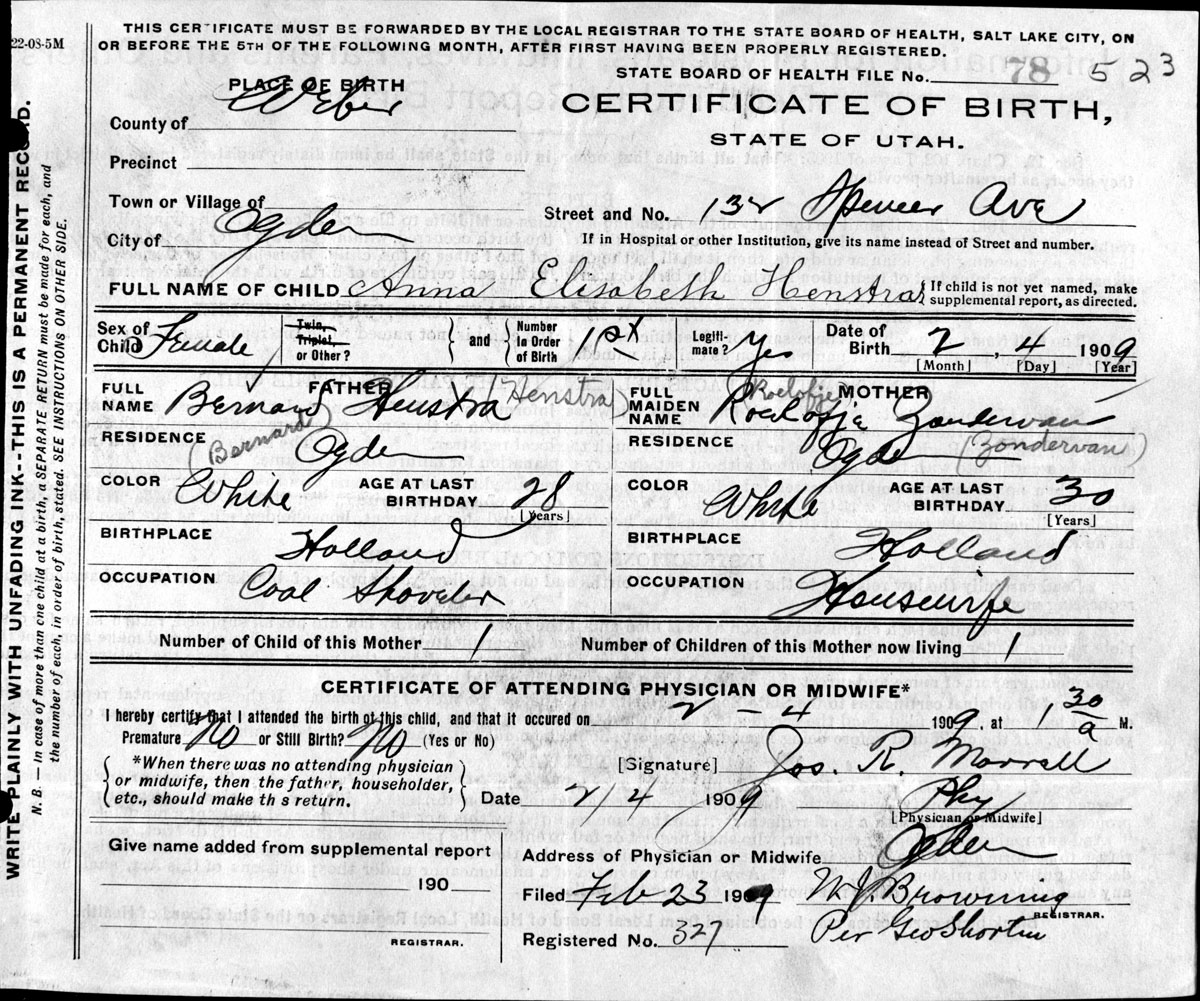 22-08-5M
THIS CERTIFICATE MUST BE FORWARDED BY THE LOCAL REGISTRAR TO THE STATE BOARD OF HEALTH, SALT LAKE CITY, ON
OR BEFORE THE 5TH OF THE FOLLOWING MONTH, AFTER FIRST HAVING BEEN PROPERLY REGISTERED.
STATE BOARD OF HEALTH FILE No. 78 523
PLACE OF BIRTH
CERTIFICATE OF BIRTH,
STATE OF UTAH.
County of Weber
Precinct
Town or Village of
Street and No. 132 Spencer Ave
City of Ogden
If in Hospital or other Institution, give its name instead of Street and number.
FULL NAME OF CHILD Anna Elisabeth Henstra { If child is not yet named, make
supplemental report, as directed.
Sex of Child Female Twin, Triplet, or Other? { } and { Number in Order of Birth 1st Legitimate? Yes Date of Birth 2, 4 1909
[Month] [Day] [Year]
FATHER
FULL NAME Bernard Henstra (Henstra)
(Bernard)
RESIDENCE Ogden
COLOR White AGE AT LAST BIRTHDAY 28
[Years]
BIRTHPLACE Holland
OCCUPATION Coal Shoveler
MOTHER
FULL MAIDEN NAME Roelofje Zondervan
(Roelofje)
RESIDENCE Ogden (Zondervan)
COLOR White AGE AT LAST BIRTHDAY 30
[Years]
BIRTHPLACE Holland
OCCUPATION Housewife
Number of Child of this Mother 1 Number of Children of this Mother now living 1
CERTIFICATE OF ATTENDING PHYSICIAN OR MIDWIFE*
I hereby certify that I attended the birth of this child, and that it occured on 2 - 4 1909, at 1 30 a M.
Premature No or Still Birth? No (Yes or No)
{ *When there was no attending physician
or midwife, then the father, householder,
etc., should make th s return. }
[Signature] Jos. R. Morrell
Date 2/4 1909 Phy
[Physician or Midwife]
Give name added from supplemental report
190
REGISTRAR.
Address of Physician or Midwife Ogden
Filed Feb 23 1909 W J Browning
REGISTRAR.
Registered No. 327 Per Geo Shorten
WRITE PLAINLY WITH UNFADING INK--THIS IS A PERMANENT RECORD.
N. B.—In case of more than one child at a birth a SEPARATE RETURN must be made for each, and
the number of each, in order of birth, stated. SEE INSTRUCTIONS ON OTHER SIDE.